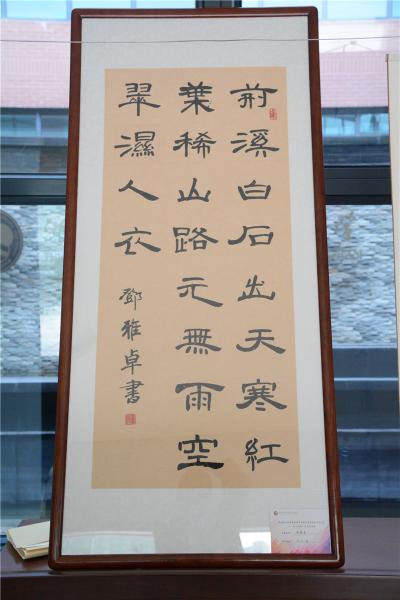 荊溪白石出天寒紅
葉稀山路元無雨空
翠濕人衣
鄧雅卓書